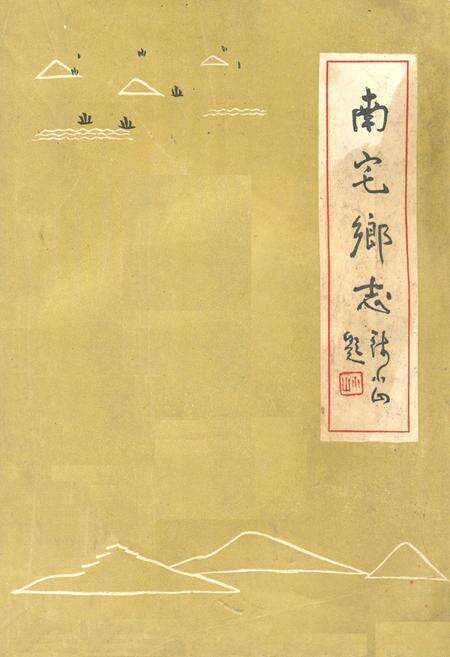 南宅鄉志
小山
題
小山